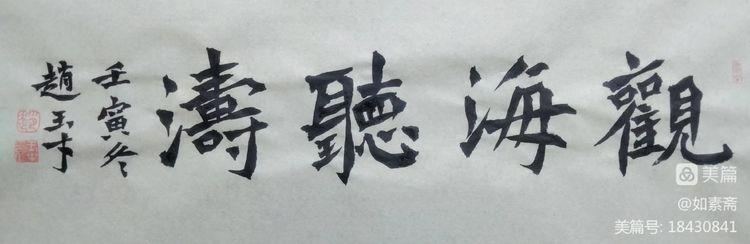 觀海聽濤
壬寅冬
趙玉
美篇
@如素斋
美篇号: 18430841